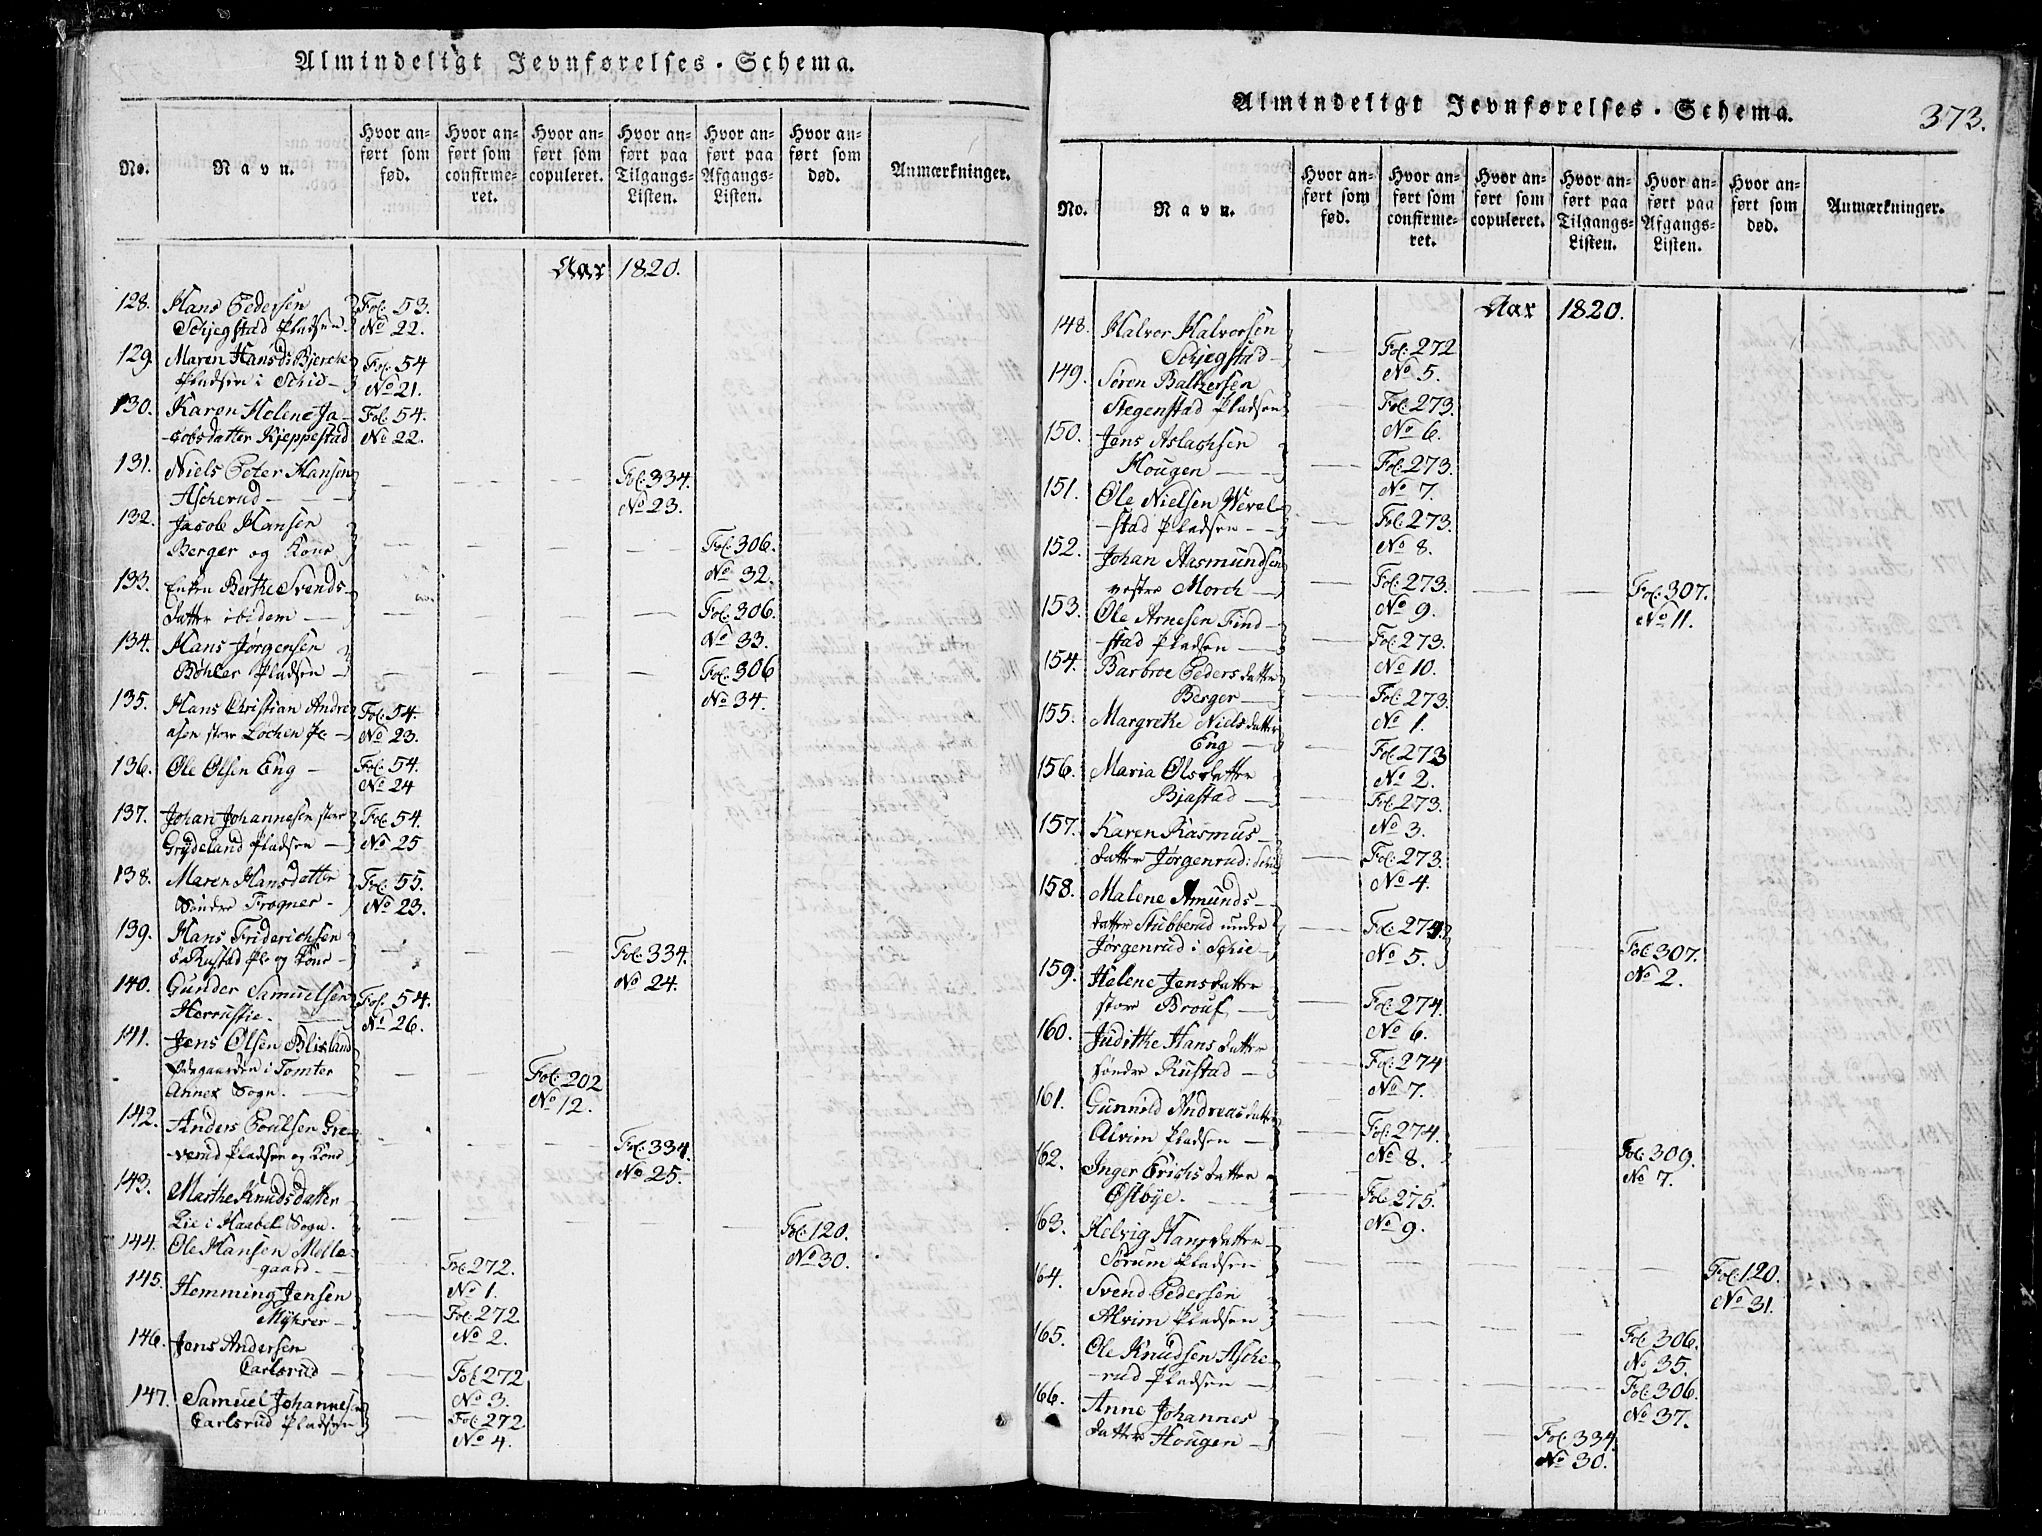 Almindeligt Jevnførelses-Schema.
No.
Navn.
Hvor an-
ført som
fød.
Hvor an-
ført som
confirme-
ret.
Hvor an-
ført som
copuleret.
Hvor an-
ført paa
Tilgangs-
Listen.
Hvor an-
ført paa
Afgangs-
Listen.
Hvor an-
ført som
død.
Anmærkninger.
Aar 1820.
128. Hans Pedersen Fol. 53.
Schjegstad Pladsen No 22.
129. Maren Hansd: Bjerche Fol. 54
Pladsen i Schid- No 21.
130. Karen Helene Ja- Fol. 54.
-cobsdatter Kjeppestad No 22.
131. Niels Peter Hansen Fol. 334.
Ascherud - No 23.
132. Jacob Hansen
Berger og Kone Fol. 306. No 32.
133. Enken Berthe Svends-
datter ibidem - Fol. 306. No 33.
134. Hans Jørgensen
Bøhler Pladsen - Fol. 306 No 34.
135. Hans Christian Andre Fol. 54.
asen store Lochen Pl. - No 23.
136. Ole Olsen Eng - Fol. 54.
No 24
137. Johan Johannesen store Fol. 54.
Grydeland Pladsen - No 25
138. Maren Hansdatter Fol. 55.
Søndre Frogner - No 23.
139. Hans Friderichsen
Rustad Pl. og Kone - Fol. 334. No 24.
140. Gunder Samuelsen Fol. 54.
Horrustie. No 26.
141. Jens Olsen Blixland
Ødegaarden i Tomter Fol. 202
Annex Sogn. No 12.
142. Anders Poulsen Gre-
verud Pladsen og Kone Fol. 334. No 25.
143. Marthe Knudsdatter
Lie i Haabel Sogn. Fol. 120. No 30.
144. Ole Hansen Molle-
gaard - Fol. 272. No 1.
145. Hemming Jensen
Myhrer - Fol. 272. No 2.
146. Jens Andersen
Carlsrud - Fol. 272 No 3.
147. Samuel Johannesen
Carlsrud Pladsen Fol. 272. No 4.
Almindeligt Jevnførelses-Schema.
373.
No.
Navn.
Hvor an-
ført som
fød.
Hvor an-
ført som
confirme-
ret.
Hvor an-
ført som
copuleret.
Hvor an-
ført paa
Tilgangs-
Listen.
Hvor an-
ført paa
Afgangs-
Listen.
Hvor an-
ført som
død.
Anmærkninger.
Aar 1820.
148. Halvor Halvorsen
Schjegstad - Fol. 272 No 5.
149. Søren Baltzersen
Stegenstad Pladsen Fol. 273. No 6.
150. Jens Aslachsen
Hougen - Fol. 273. No 7.
151. Ole Nielsen Wevel-
-stad Pladsen - Fol. 273. No 8.
152. Johan Aasmundsen
vestre Morch - Fol. 273. No 9. Fol. 307. No 11.
153. Ole Arnesen Find-
-stad Pladsen - Fol. 273. No 10.
154. Barbroe Pedersdatter
Berger - Fol. 273. No 1.
155. Margrethe Nielsdatter
Eng - Fol. 273 No 2.
156. Maria Olsdatter
Bjastad - Fol. 273. No 3.
157. Karen Rasmus-
datter Jørgenrud Fol. 273. No 4.
158. Malene Amunds-
datter Stubberud under Fol. 274.
Jørgenrud i Schie- No 5. Fol. 307. No 2.
159. Helene Jensdatter
store Brouf - Fol. 274. No 6.
160. Judithe Hansdatter
søndre Rustad - Fol. 274 No 7.
161. Gunnild Andreasdatter
Alvim Pladsen - Fol. 274. No 8. Fol. 309. No 7.
162. Inger Erichsdatter
Østbye. Fol. 275. No 9.
163. Helvig Hansdatter
Sørum Pladsen Fol. 120. No 31.
164. Svend Pedersen
Alvim Pladsen Fol. 306. No 35.
165. Ole Knudsen Asche-
-rud Pladsen - Fol. 306. No 37.
166. Anne Johannes
datter Hougen - Fol. 334. No 30.